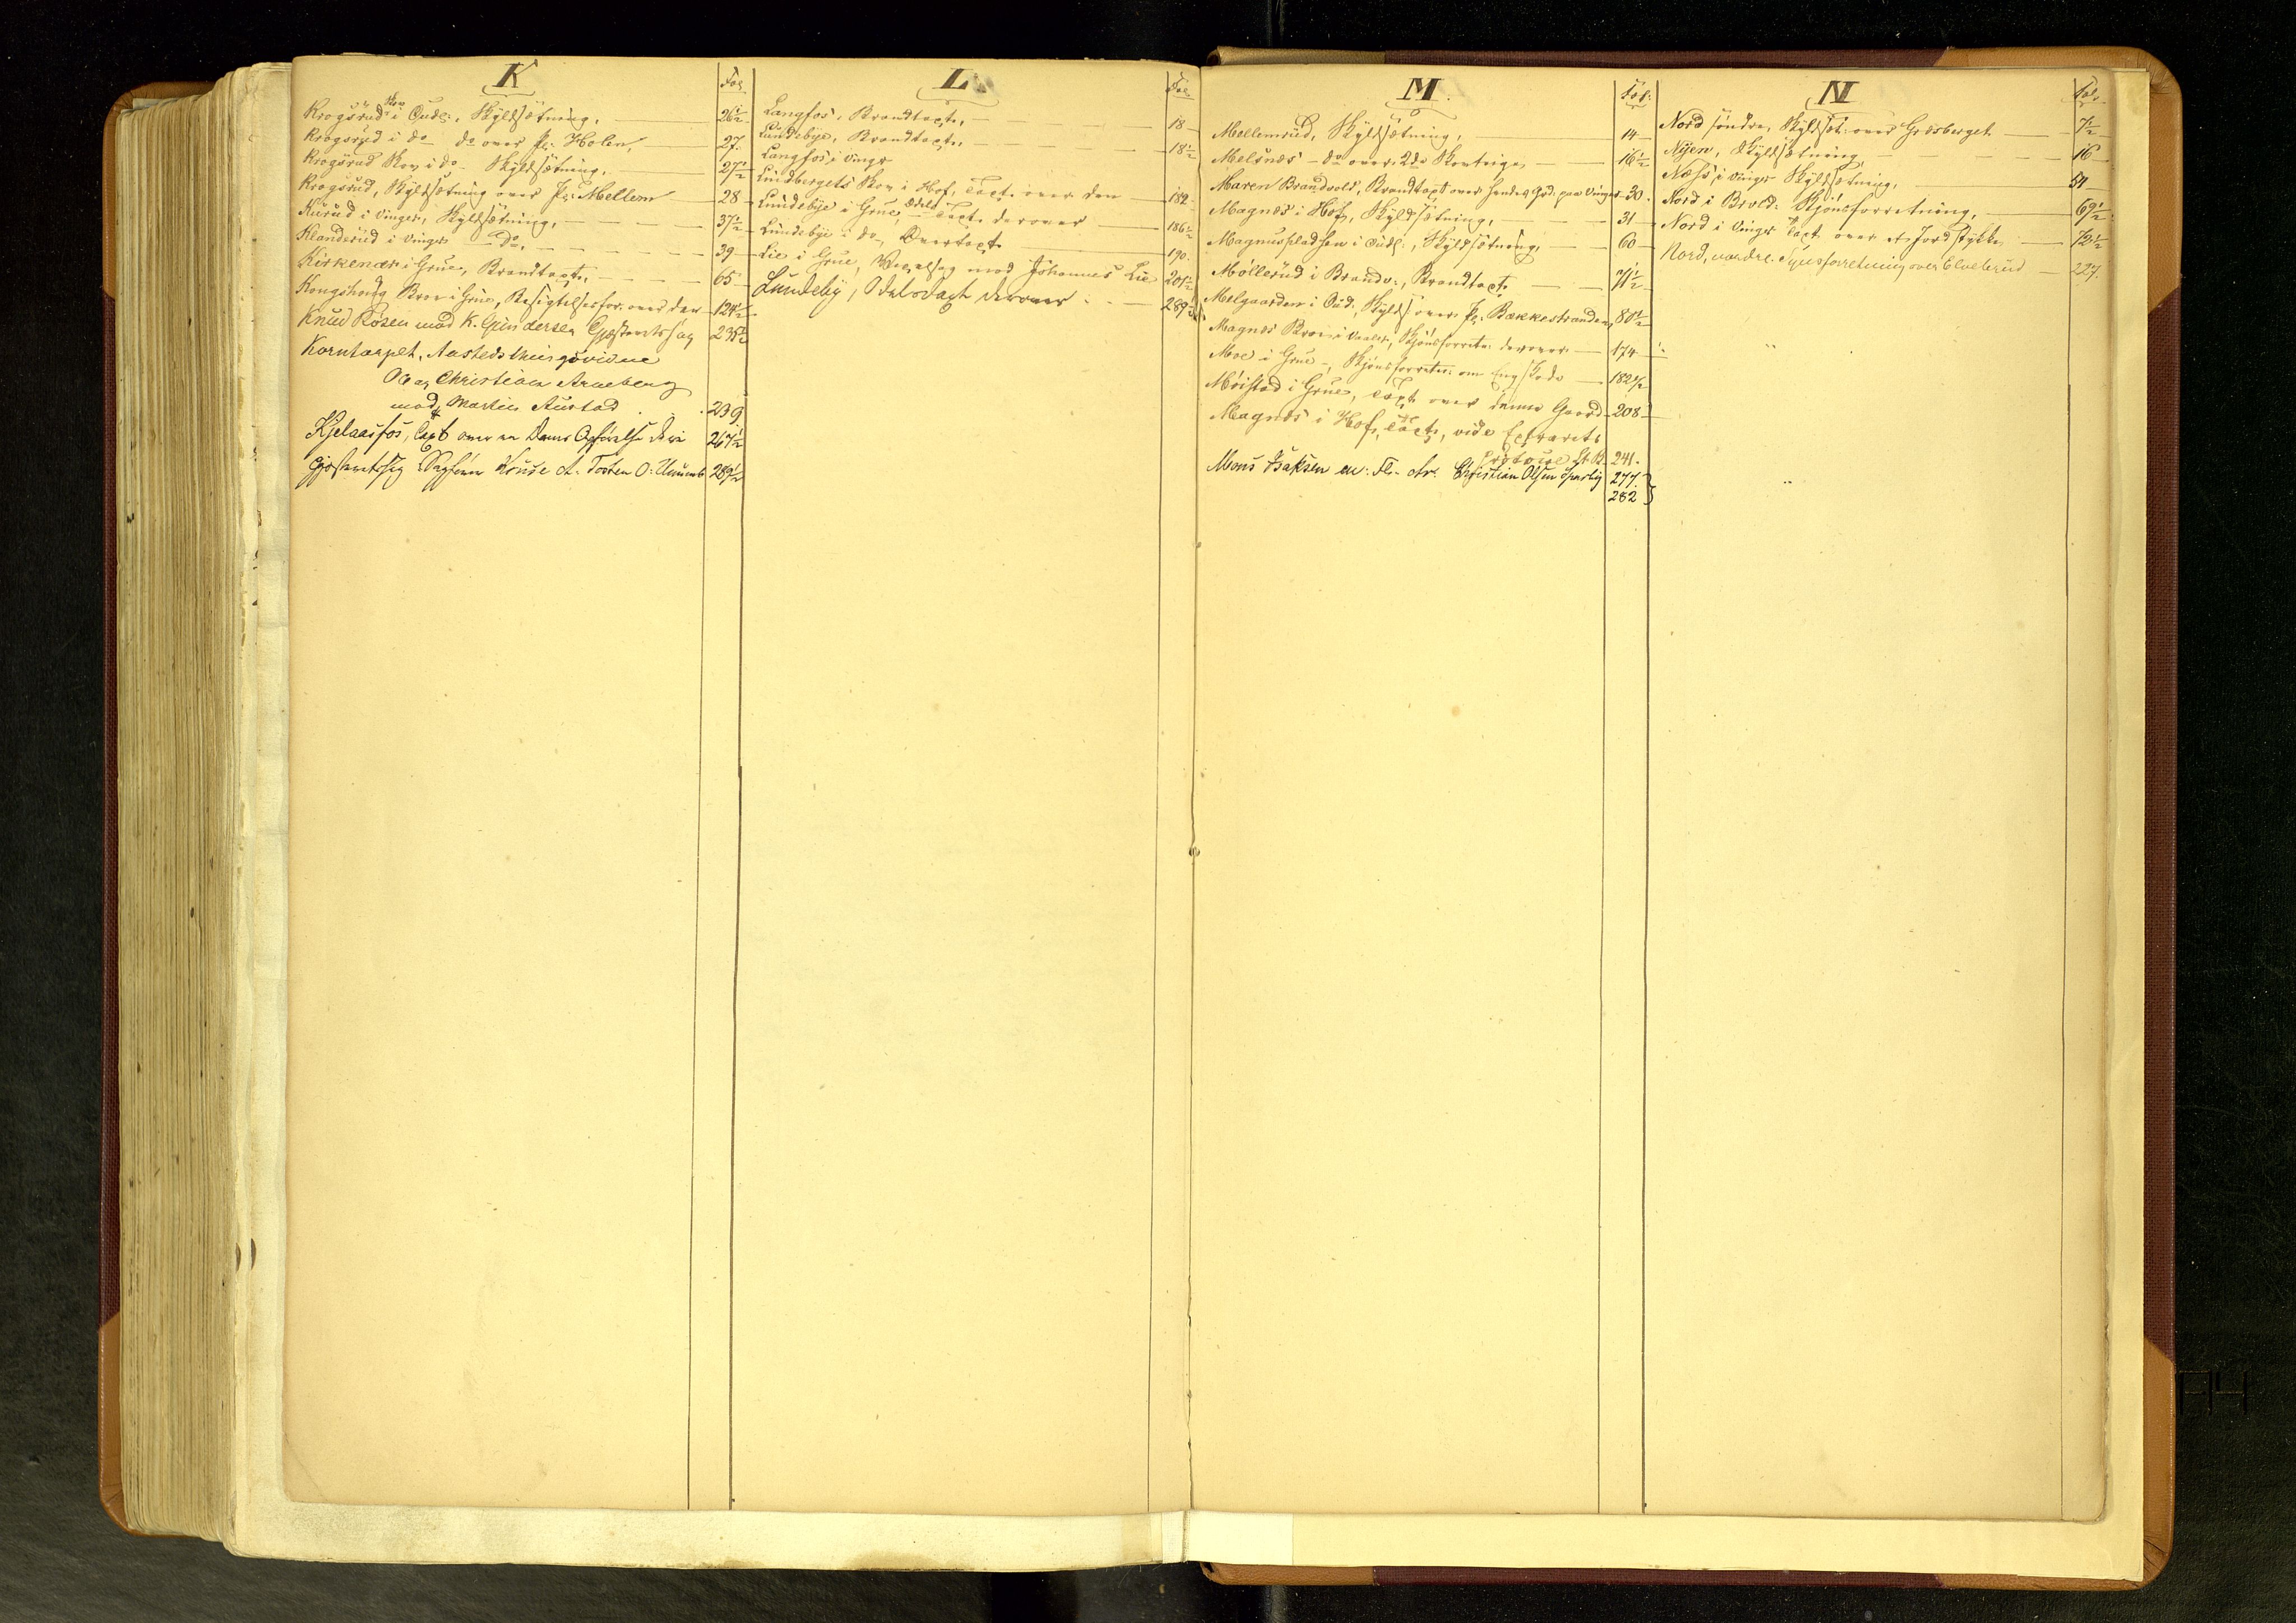 K
Fol.
Krogsrud Skov i Oudl:, Skyldsætning, 26½
Krogsrud i do do over Pl: Holen, 27.
Krogsrud Skov i do Skyldsætning, 27½
Krogsrud, Skyldsætning over Pl: Mellem 28
Kurud i Vinger, Skyldsætning, 37½
Klanderud i Vinger do, 39
Kirkenær i Grue, Brandtaxt, 65
Kongshoug Skov i Grue, Besigtelsesfor. over den 124½
Knud Rosen mod K. Gundersen Gjæsteretssag 235½
Korntorpet, Aastedsthingsvidne
Christian Arneberg
mod Martin Austad 239
Kjelaasfos, Taxt over en Dams Opførelse 267½
Gjæsteretssag Sagfører Kruse ct. Torsten O: 289½
L.
Fol.
Langfos, Brandtaxt, 18
Lundebye, Brandtaxt, 18½
Langfos i Vinger
Lundbergets Skov i Hof, Taxt over den 182
Lundebye i Grue, Odels Taxt derover 186½
Lundebye i do, Overtaxt 190.
Lie i Grue, Vexelsag mod Johannes Lie 201½
Lundeby, Odelstaxt derover 289
M.
Fol:
Mellemrud, Skyldsætning, 14
Melsnæs do over 2de 16½
Maren Brandvold, Brandtaxt over hendes Grd. paa Vinger 30.
Magnæs i Hof, Skyldsætning, 31
Magnuspladsen i Oudl:, Skyldsætning, 60
Møllerud i Brandv:, Brandtaxt 71½
Melgaarden i Oud., Skylds over Pl. Bækkestranden, 80½
Magnæs Skov i Vaaler, Skjønsforretn. derover 174
Moe i Grue, Skjønsforretn: om Engskade 182½
Møistad i Grue, Taxt over denne Gaard 208
Magnæs i Hof, Taxt, vide Extrarets
protocol Lt B. 241.
Mons Isaksen m: Fl. ctr. Christian Olsen 277.
282
N
Fol.
Nord søndre, Skyldsæt: over Græsberget 7½
Nyen, Skyldsætning, 16
Næss i Vinger Skyldsætning, 54
Nord i Brvld: Skjønsforretning, 69½
Nord i Vinger Taxt over et Jordstykke 72½
Nord, nordre. Synsforretning over Elvebrud 227.